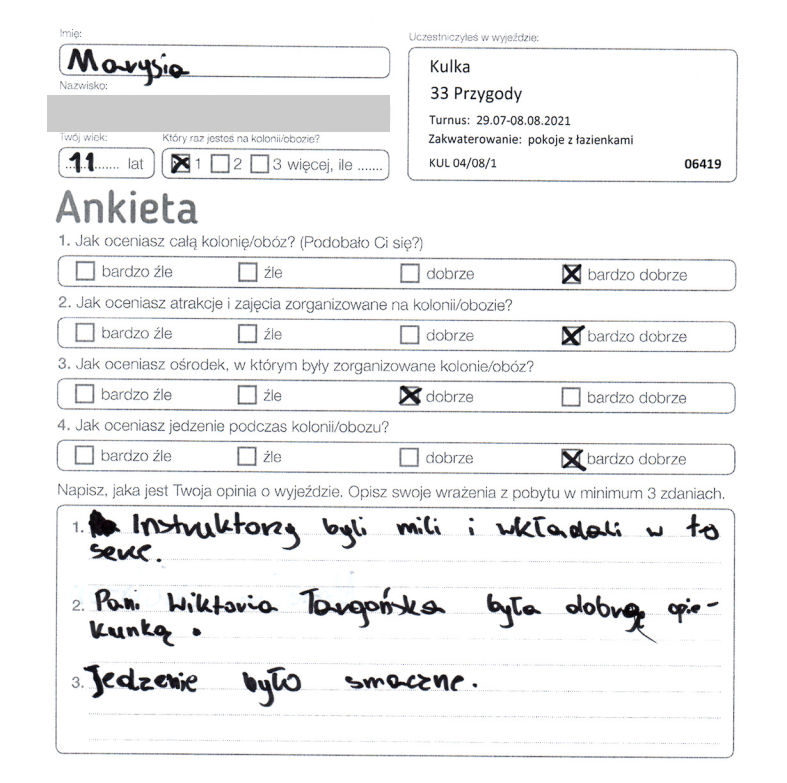 Imię:
Marysia
Nazwisko:
Twój wiek:
11 lat
Który raz jesteś na kolonii/obozie?
1 2 3 więcej, ile .......
Uczestniczyłeś w wyjeździe:
Kulka
33 Przygody
Turnus: 29.07-08.08.2021
Zakwaterowanie: pokoje z łazienkami
KUL 04/08/1 06419
Ankieta
1. Jak oceniasz całą kolonię/obóz? (Podobało Ci się?)
bardzo źle źle dobrze bardzo dobrze
2. Jak oceniasz atrakcje i zajęcia zorganizowane na kolonii/obozie?
bardzo źle źle dobrze bardzo dobrze
3. Jak oceniasz ośrodek, w którym były zorganizowane kolonie/obóz?
bardzo źle źle dobrze bardzo dobrze
4. Jak oceniasz jedzenie podczas kolonii/obozu?
bardzo źle źle dobrze bardzo dobrze
Napisz, jaka jest Twoja opinia o wyjeździe. Opisz swoje wrażenia z pobytu w minimum 3 zdaniach.
1. Instruktorzy byli mili i wkładali w to
serce.
2. Pani Wiktoria Targońska była dobrą opie-
kunką.
3. Jedzenie było smaczne.